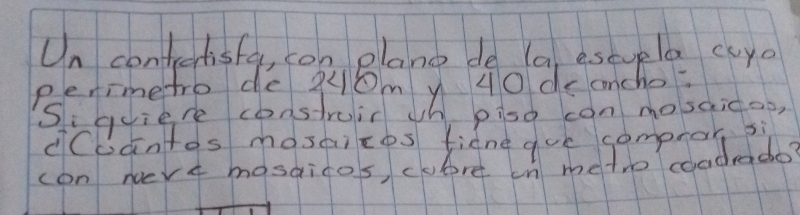 Un contratista, con plano de la escuela cuyo
perimetro de 240m y 40 de ancho.
Si quiere construir un piso con mosaicos,
¿Cuántos mosaicos tiene que comprar si
con nueve mosaicos, cubre un metro coadrado?